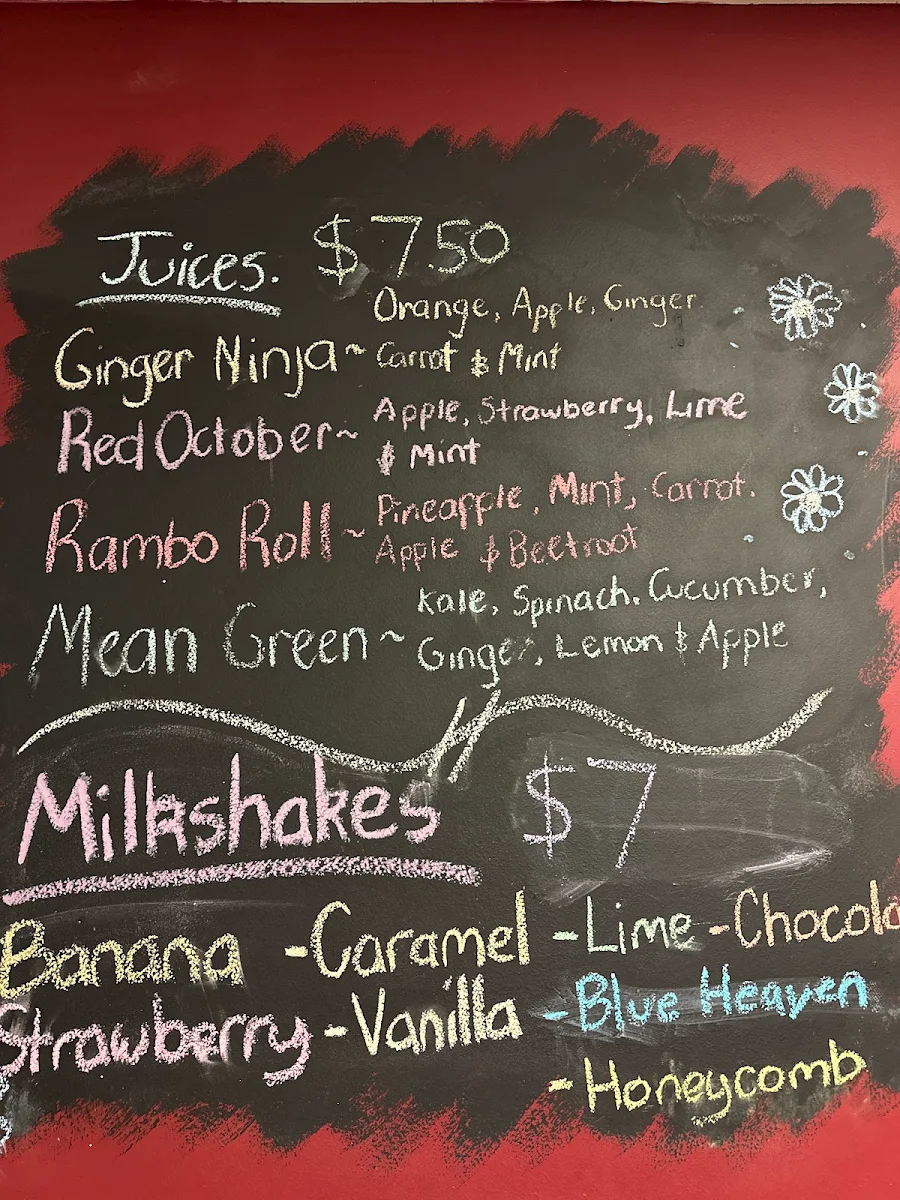 Juices. $7.50
Orange, Apple, Ginger
Ginger Ninja~ Carrot & Mint
Red October~ Apple, Strawberry, Lime
& Mint
Rambo Roll~ Pineapple, Mint, Carrot.
Apple & Beetroot
Kale, Spinach. Cucumber,
Mean Green~ Ginger, Lemon & Apple
Milkshakes $7
Banana -Caramel -Lime -Chocola
Strawberry -Vanilla -Blue Heaven
-Honeycomb